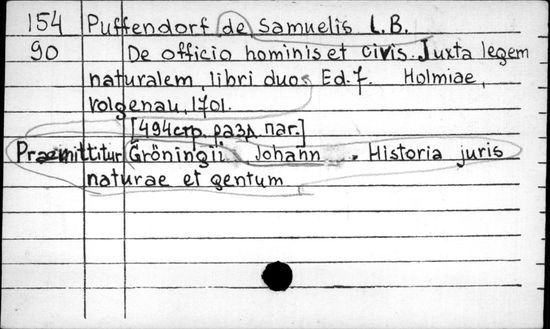 154 Puffendorf de Samuelis L.B.
90 De officio hominis et civis. Juxta legem
naturalem, libri duo. Ed. 7. Holmiae,
Volgenau, 1701.
[494 стр. разд. паг.]
Praemittitur Gröningii Johann . Historia juris
naturae et gentum